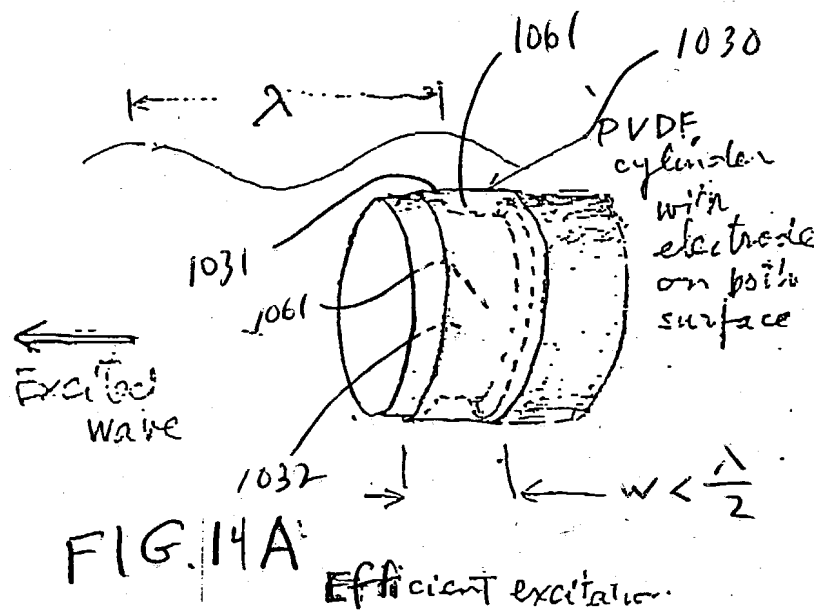 1061
1030
λ
PVDF
cylinder
with
electrode
on both
surface
1031
1061
Excited
wave
1032
w < λ/2
FIG. 14A
Efficient excitation.